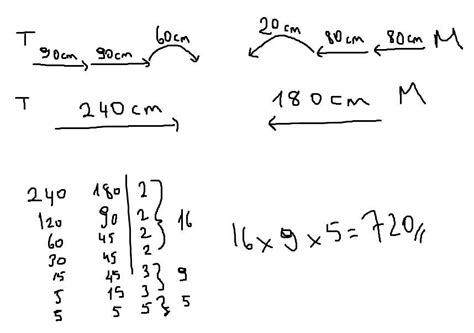 T 90cm 90cm 60cm 20cm 80cm 80cm M
T 240cm 180cm M
240 180 2
120 90 2 16
60 45 2
30 45 2
15 45 3 9
5 15 3
5 5 5 5
16 x 9 x 5 = 720 //